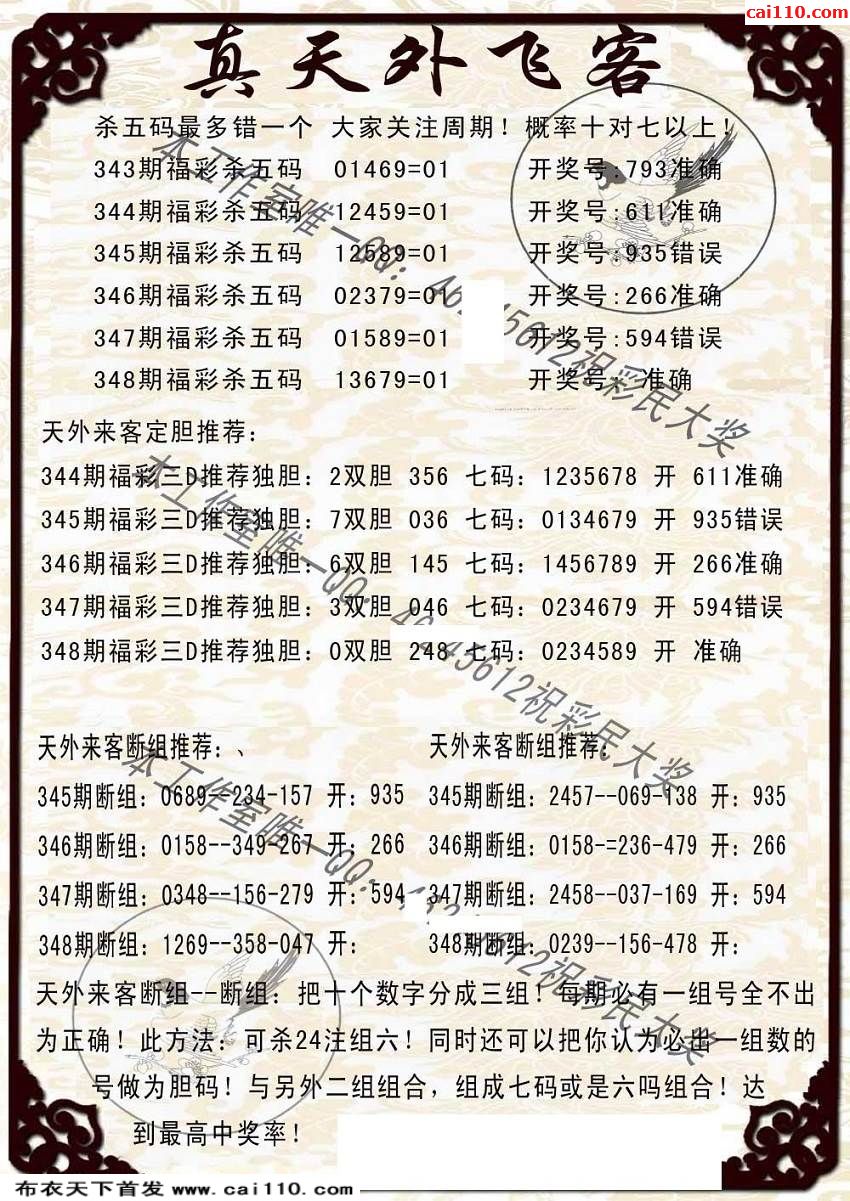 cai110.com
真天外飞客
杀五码最多错一个 大家关注周期！概率十对七以上！
343期福彩杀五码 01469=01 开奖号:793准确
344期福彩杀五码 12459=01 开奖号:611准确
345期福彩杀五码 12589=01 开奖号:935错误
346期福彩杀五码 02379=01 开奖号:266准确
347期福彩杀五码 01589=01 开奖号:594错误
348期福彩杀五码 13679=01 开奖号: 准确
天外来客定胆推荐：
344期福彩三D推荐独胆：2双胆 356 七码：1235678 开 611准确
345期福彩三D推荐独胆：7双胆 036 七码：0134679 开 935错误
346期福彩三D推荐独胆：6双胆 145 七码：1456789 开 266准确
347期福彩三D推荐独胆：3双胆 046 七码：0234679 开 594错误
348期福彩三D推荐独胆：0双胆 248 七码：0234589 开 准确
天外来客断组推荐：、 天外来客断组推荐：
345期断组：0689--234-157 开：935 345期断组：2457--069-138 开：935
346期断组：0158--349-267 开：266 346期断组：0158-=236-479 开：266
347期断组：0348--156-279 开：594 347期断组：2458--037-169 开：594
348期断组：1269--358-047 开： 348期断组：0239--156-478 开：
天外来客断组--断组：把十个数字分成三组！每期必有一组号全不出
为正确！此方法：可杀24注组六！同时还可以把你认为必出一组数的
号做为胆码！与另外二组组合，组成七码或是六吗组合！达
到最高中奖率！
布衣天下首发 www.cai110.com